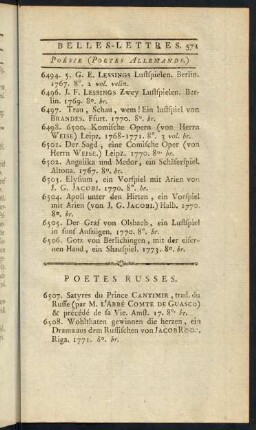 BELLES-LETTRES. 571
POÉSIE (POETES ALLEMANDS.)
6494. 5. G. E. LESSINGS Lustspielen. Berlin.
1767. 8°. 2 vol. velin.
6496. J. F. LESSINGS Zwey Lustspielen. Ber-
lin. 1769. 8°. br.
6497. Trau, Schau, wem! Ein lustspiel von
BRANDES. Ffurt. 1770. 8°. br.
6498. 6500. Komische Opern (von Herrn
WEISE) Leipz. 1768-1771. 8°. 3 vol. br.
6501. Der Sagd, eine Comische Oper (von
Herrn WEISE.) Leipz. 1770. 8°. br.
6502. Angelika und Medor, ein Schäferspiel.
Altona. 1767. 8°. br.
6503. Elysium, ein Vorspiel mit Arien von
J. G. JACOBI. 1770. 8°. br.
6504. Apoll unter den Hirten, ein Vorspiel
mit Arien (von J. G. JACOBI) Halb. 1770.
8°. br.
6505. Der Graf von Olsbach, ein Lustspiel
in funf Aufzügen. 1770. 8°. br.
6506. Gotz von Berlichingen, mit der eiser-
nen Hand, ein Shauspiel. 1773. 8°. br.
POETES RUSSES.
6507. Satyres du Prince CANTIMIR, trad. du
Russe (par M. L'ABBÉ COMTE DE GUASCO)
& précédé de sa Vie. Amst. 17. 8°. br.
6508. Wohlthaten gewinnen die herzen, ein
Drama aus dem Russischen von
Riga. 1771. 8°. br.